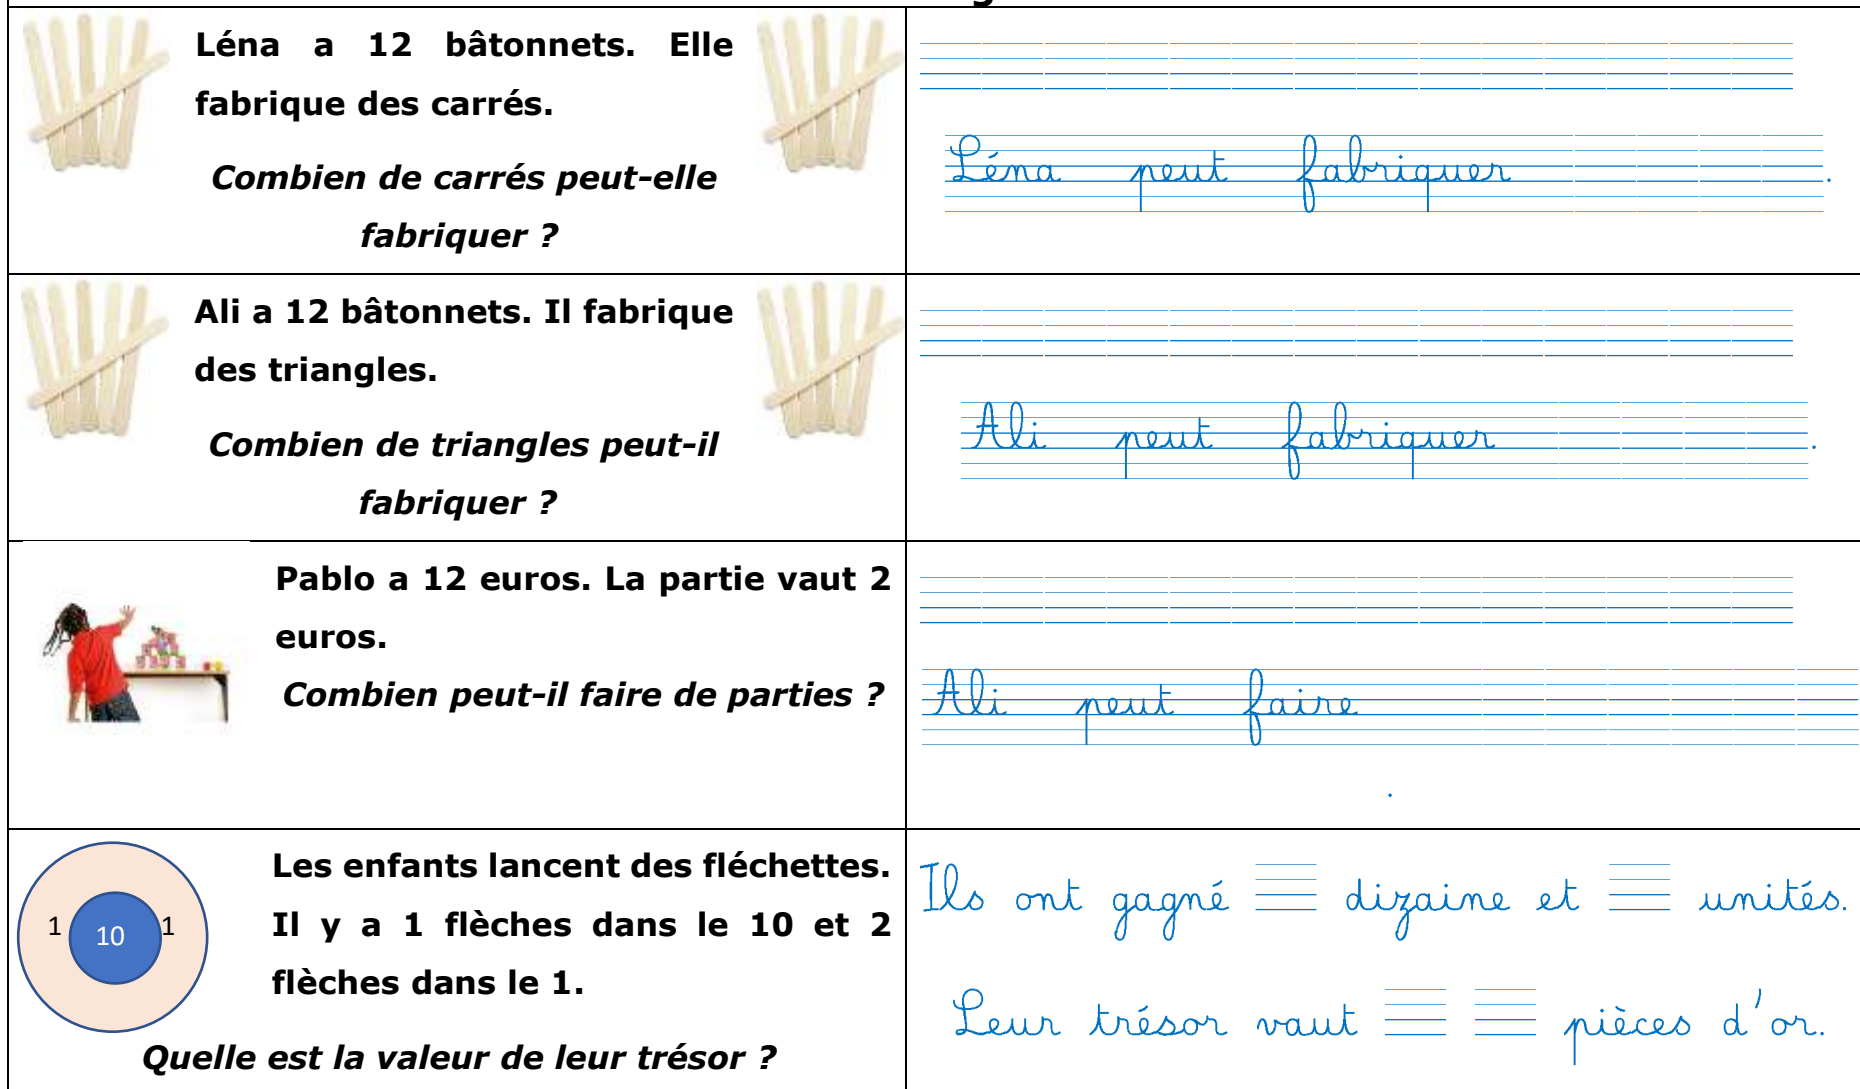 Léna a 12 bâtonnets. Elle
fabrique des carrés.
Combien de carrés peut-elle
fabriquer ?
Léna peut fabriquer .
Ali a 12 bâtonnets. Il fabrique
des triangles.
Combien de triangles peut-il
fabriquer ?
Ali peut fabriquer .
Pablo a 12 euros. La partie vaut 2
euros.
Combien peut-il faire de parties ?
Ali peut faire
.
1 10 1
Les enfants lancent des fléchettes.
Il y a 1 flèches dans le 10 et 2
flèches dans le 1.
Quelle est la valeur de leur trésor ?
Ils ont gagné dizaine et unités.
Leur trésor vaut pièces d'or.